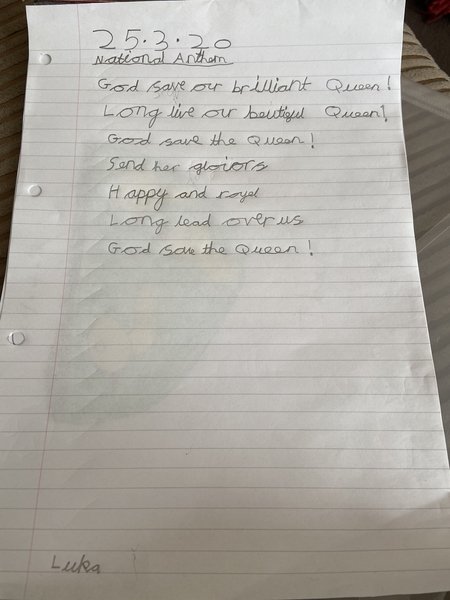 25.3.20
National Anthem
God save our brilliant Queen!
Long live our beutiful Queen!
God save the Queen!
Send her gloiors
Happy and royel
Long lead over us
God save the Queen!
Luka